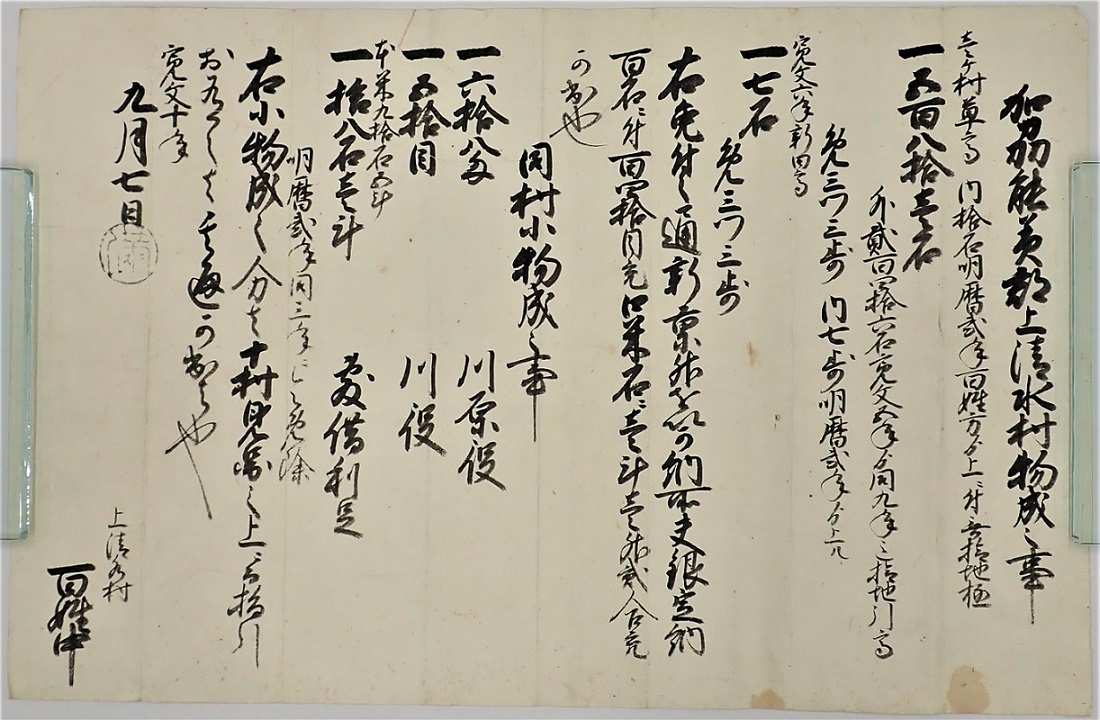 加刕能美郡上清水村物成之事
壱ヶ村草高 内拾石明暦弐年百姓方ゟ上ニ付無検地極
一五百八拾壱石
外弐百四拾六石寛文五年ゟ同九年之検地引高
免三ツ三歩 内七歩明暦弐年ゟ上ル
寛文六年新田高
一七石
免三ツ三歩
右免付之通新京升を以可納所夫銀定納
百石ニ付百四拾目宛口米石ニ壱斗壱升弐合宛
可出也
同村小物成之事
一六拾八匁 川原役
一五拾目 川役
本米九拾石五斗
一拾八石壱斗 敷借利足
明暦弐年同三年ニ令免除
右小物成之分者十村見図之上ニ而指引
於有之者其通可出者也
寛文十年
九月七日
上清水村
百姓中